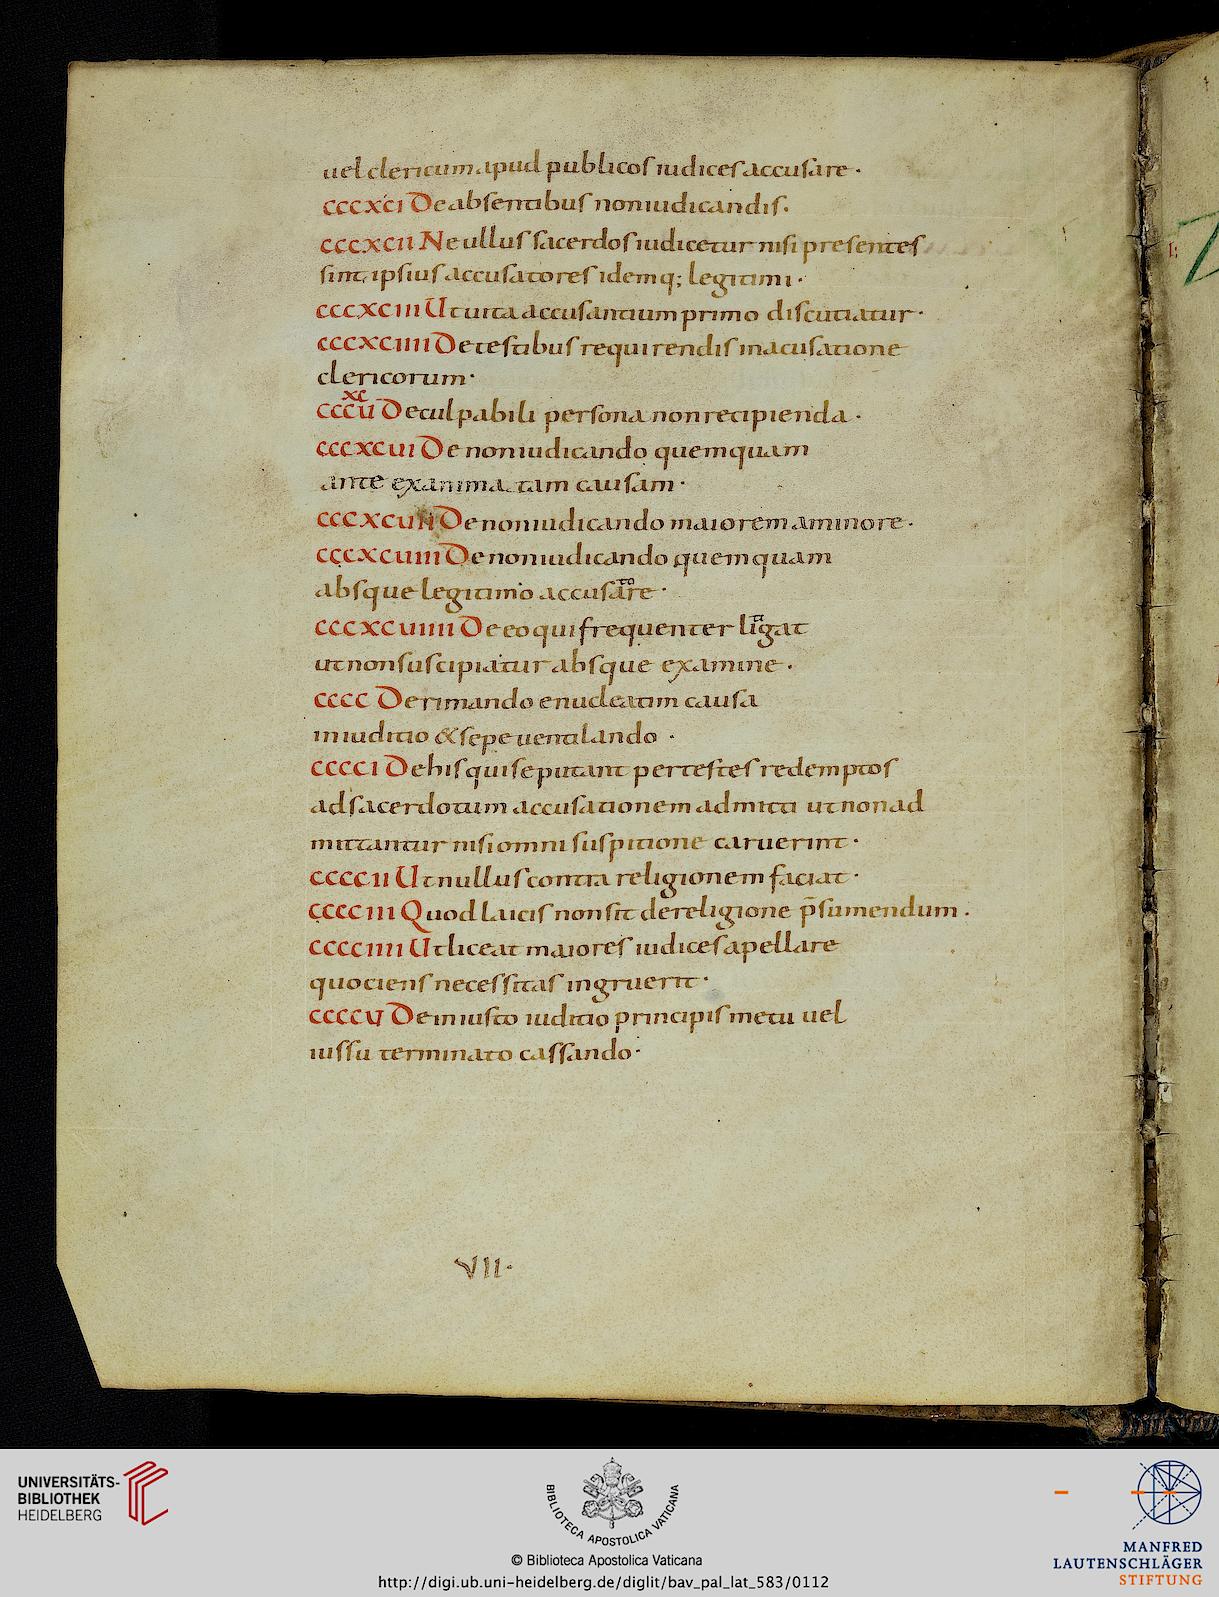 uel clericum apud publicos iudices accusare ·
cccxci De absentibus non iudicandis.
cccxcii Ne ullus sacerdos iudicetur nisi presentes
sint, ipsius accusatores idemq; legitimi ·
cccxciii Ut uita accusantium primo discutiatur ·
cccxciiii De testibus requirendis in acusatione
clericorum ·
xc
cccu De culpabili persona non recipienda ·
cccxcui De non iudicando quemquam
ante examinatam causam ·
cccxcuii De non iudicando maiorem a minore ·
cccxcuiii De non iudicando quemquam
absque legitimo accusare ·
cccxcuiiii De eo qui frequenter ligat
ut non suscipiatur absque examine ·
cccc De rimando enucleatim causa
in iuditio & sepe uentilando ·
cccci De his qui se putant per testes redemptos
ad sacerdotum accusationem admitti ut non ad
mittantur nisi omni suspitione caruerint ·
ccccii Ut nullus contra religionem faciat ·
cccciii Quod laicis non sit de religione p̄sumendum ·
cccciiii Ut liceat maiores iudices apellare
quociens necessitas ingruerit ·
ccccu De iniusto iuditio principis metu uel
iussu terminato cassando ·
VII ·
UNIVERSITÄTS-
BIBLIOTHEK
HEIDELBERG
BIBLIOTECA APOSTOLICA VATICANA
© Biblioteca Apostolica Vaticana
http://digi.ub.uni-heidelberg.de/diglit/bav_pal_lat_583/0112
MANFRED
LAUTENSCHLÄGER
STIFTUNG